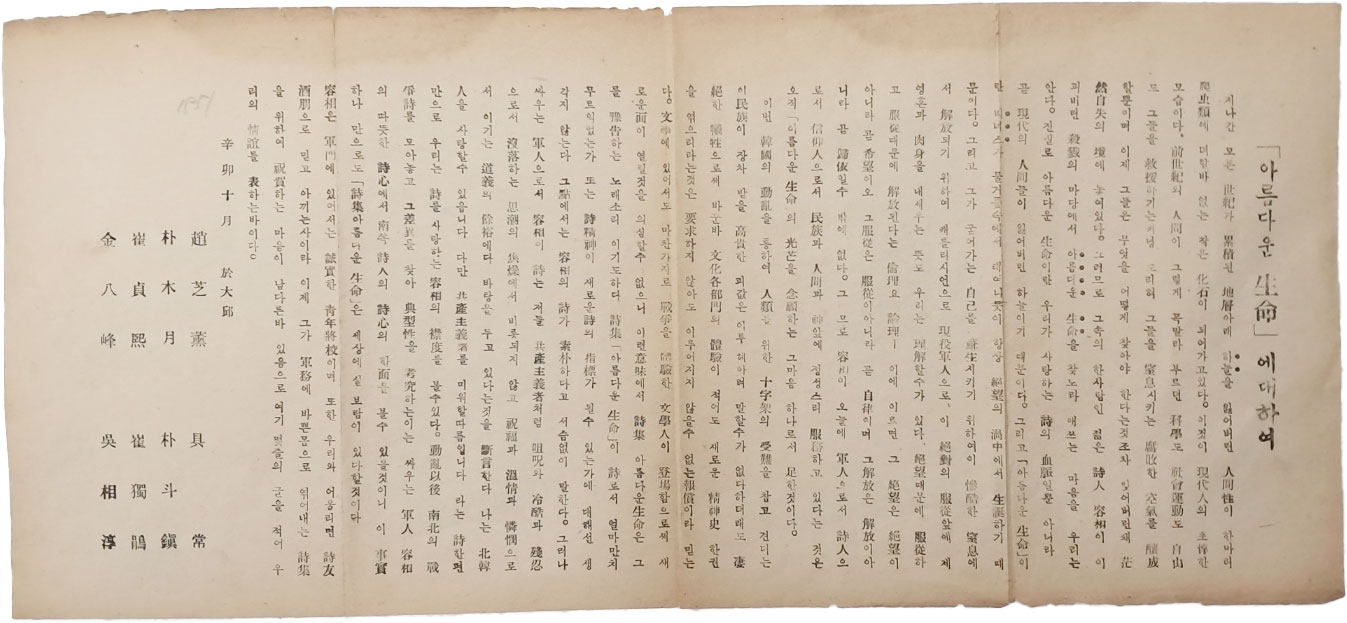 「아름다운 生命」에대하여
지나간 모든 世紀가 累積된 地層아래 하늘을 잃어버린 人間性이 하마터
爬虫類에 더할바 없는 작은 化石이 되어가고있다. 이것이 現代人의
모습이다. 前世紀의 人間이 그렇게 목말라 부르던 科學도 社會運動도 自由
도 그들을 救援하기는커녕 도리혀 그들을 窒息시키는 腐敗한 空氣를 釀成
할뿐이며 이제 그들은 무엇을 어떻게 찾아야 한다는것조차 잊어버린채 茫
然自失의 境에 놓여있다. 그러므로 그속의 한사람인 젊은 詩人 容相이 이
피비린 殺戮의 마당에서 아름다운 生命을 찾노라 애쓰는 마음을 우리는
안다. 진실로 아름다운 生命이란 우리가 사랑하는 詩의 血脈일뿐 아니라
곧 現代의 人間들이 잃어버린 하늘이기 때문이다. 그리고 「아름다운 生命」이
란 비너스가 물거품속에서 태여나듯이 항상 絕望의 渦中에서 生誕하기 때
문이다. 그리고 그가 굳어가는 自己를 蘇生시키기 위하여이 慘酷한 窒息에
서 解放되기 위하여 캐틀리시언으로 現役軍人으로, 이 絕對의 服從앞에 제
영혼과 肉身을 내세우는 뜻도 우리는 理解할수가 있다. 絕望때문에 服從하
고 服從때문에 解放된다는 倫理요 論理─ 이에 이르면 그 絕望은 絕望이
아니라 곧 希望이오 그服從은 服從이아니라 곧 自律이며 그解放은 解放이아
니라 곧 歸依일수 밖에 없다. 그 므로 容相이 오늘에 軍人으로서 詩人으
로서 信仰人으로서 民族과 人間과 神앞에 정성스리 服務하고 있다는 것은
오직 「아름다운 生命의 光芒을 念願하는 그마음 하나로서 足한것이다.
이번 韓國의 動亂을 통하여 人類를 위한 十字架의 受難을 참고 견디는
이民族이 장차 받을 高貴한 피값은 이루 헤아려 말할수가 없다하더래도 凄
絕한 犧牲으로써 바꾼바 文化各部門의 體驗이 적어도 새로운 精神史 한권
을 엮으리라는것은 要求하지 않아도 이루어지지 않을수 없는報償이라 믿는
다. 文學에 있어서도 마찬가지로 戰爭을 體驗한 文學人이 登場함으로써 새
로운面이 열릴것을 의심할수 없으니 이런意味에서 詩集 아름다운生命은 그
를 豫告하는 노래소리 이기도하다. 詩集「아름다운 生命」이 詩로서 얼마만치
무르익었는가 또는 詩精神이 새로운詩의 指標가 될수 있는가에 대해선 생
각지 않는다 그點에서는 容相의 詩가 素朴하다고 서슴없이 말한다. 그러나
싸우는 軍人으로서 容相이 詩는 저들 共產主義者처럼 咀呪와 冷酷과 殘忍
으로서 沒落하는 思潮의 焦燥에서 비롯되지 않고 祝福과 溫情과 憐憫으로
서 이기는 道義의 餘裕에다 바탕을 두고 있다는것을 斷言한다 나는 北韓
人을 사랑할수 있읍니다 다만 共產主義者를 미워할따름입니다 라는 詩한편
만으로 우리는 詩를 사랑하는 容相의 襟度를 볼수있다. 動亂以後 南北의 戰
爭詩를 모아놓고 그差異를 찾아 典型性을 考究하는이는 싸우는 軍人 容相
의 따뜻한 詩心에서 南쪽 詩人의 詩心의 한面을 볼수 있을것이니 이 事實
하나 만으로도「詩集아름다운 生命」은 세상에실 보람이 있다할것이다
容相은 軍門에 있어서는 誠實한 靑年將校이며 또한 우리와 어울리면 詩友
酒朋으로 믿고 아끼는사이라 이제 그가 軍務에 바쁜몸으로 엮어내는 詩集
을 위하여 祝賀하는 마음이 남다른바 있음으로 여기 몇줄의 글을 적어 우
리의 情誼를 表하는바이다。
辛卯十月 於大邱
趙芝薰 具常
朴木月 朴斗鎭
崔貞熙 崔獨鵑
金八峰 吳相淳
1951